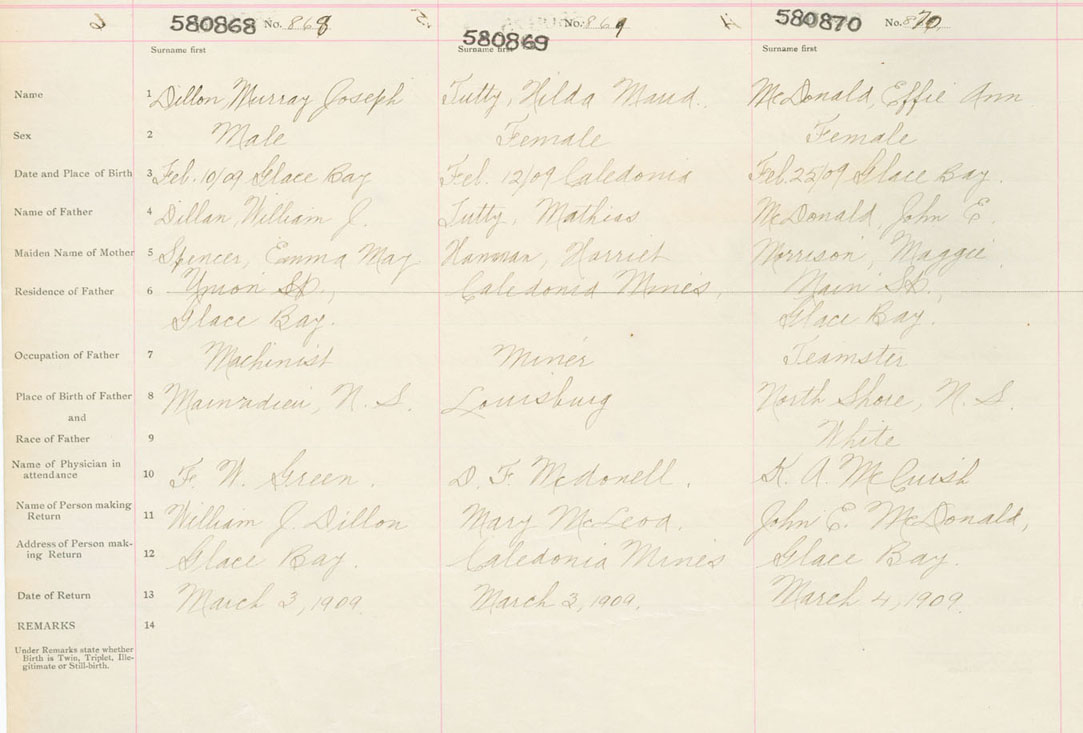 580868 No. 868
580869 No. 869
580870 No. 870
Surname first Surname first Surname first
Name 1 Dillon, Murray Joseph Tutty, Hilda Maud. McDonald, Effie Ann
Sex 2 Male Female Female
Date and Place of Birth 3 Feb. 10/09 Glace Bay Feb. 12/09 Caledonia Feb. 25/09 Glace Bay.
Name of Father 4 Dillan, William J. Tutty, Mathias McDonald, John E.
Maiden Name of Mother 5 Spencer, Emma May Harriet Morrison, Maggie
Residence of Father 6 Union St., Caledonia Mines, Main St.,
Glace Bay. Glace Bay.
Occupation of Father 7 Machinist Miner Teamster
Place of Birth of Father 8 Mainadieu, N. S. Louisburg North Shore, N. S.
and
Race of Father 9 White
Name of Physician in
attendance 10 F. W. Green. D. F. Mcdonell. K. A. McCuish
Name of Person making
Return 11 William J. Dillon Mary McLeod. John E. McDonald,
Address of Person mak-
ing Return 12 Glace Bay. Caledonia Mines Glace Bay.
Date of Return 13 March 3, 1909. March 3, 1909. March 4, 1909.
REMARKS 14
Under Remarks state whether
Birth is Twin, Triplet, Ille-
gitimate or Still-birth.